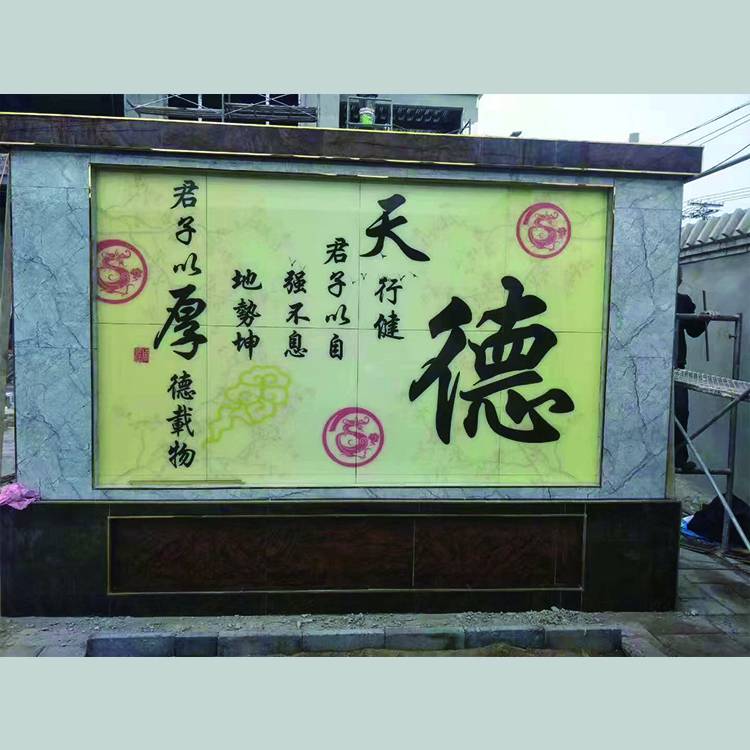 德
天行健
君子以自
强不息
地勢坤
君子以厚德載物